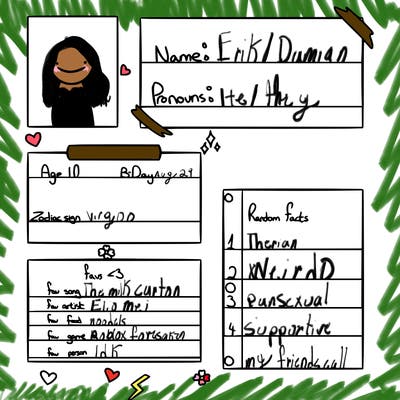 Name: Erik/Damian
Pronouns: He/they
Age 10 BiDay Aug 29
Zodiac sign virgion
favs <3
fav song The milk carton
fav artist
fav food noodols
fav game Roblox forsaken
fav person IDK
Random facts
1 Therian
2 WeirdD
3 pansexual
4 Supportive
my friends call